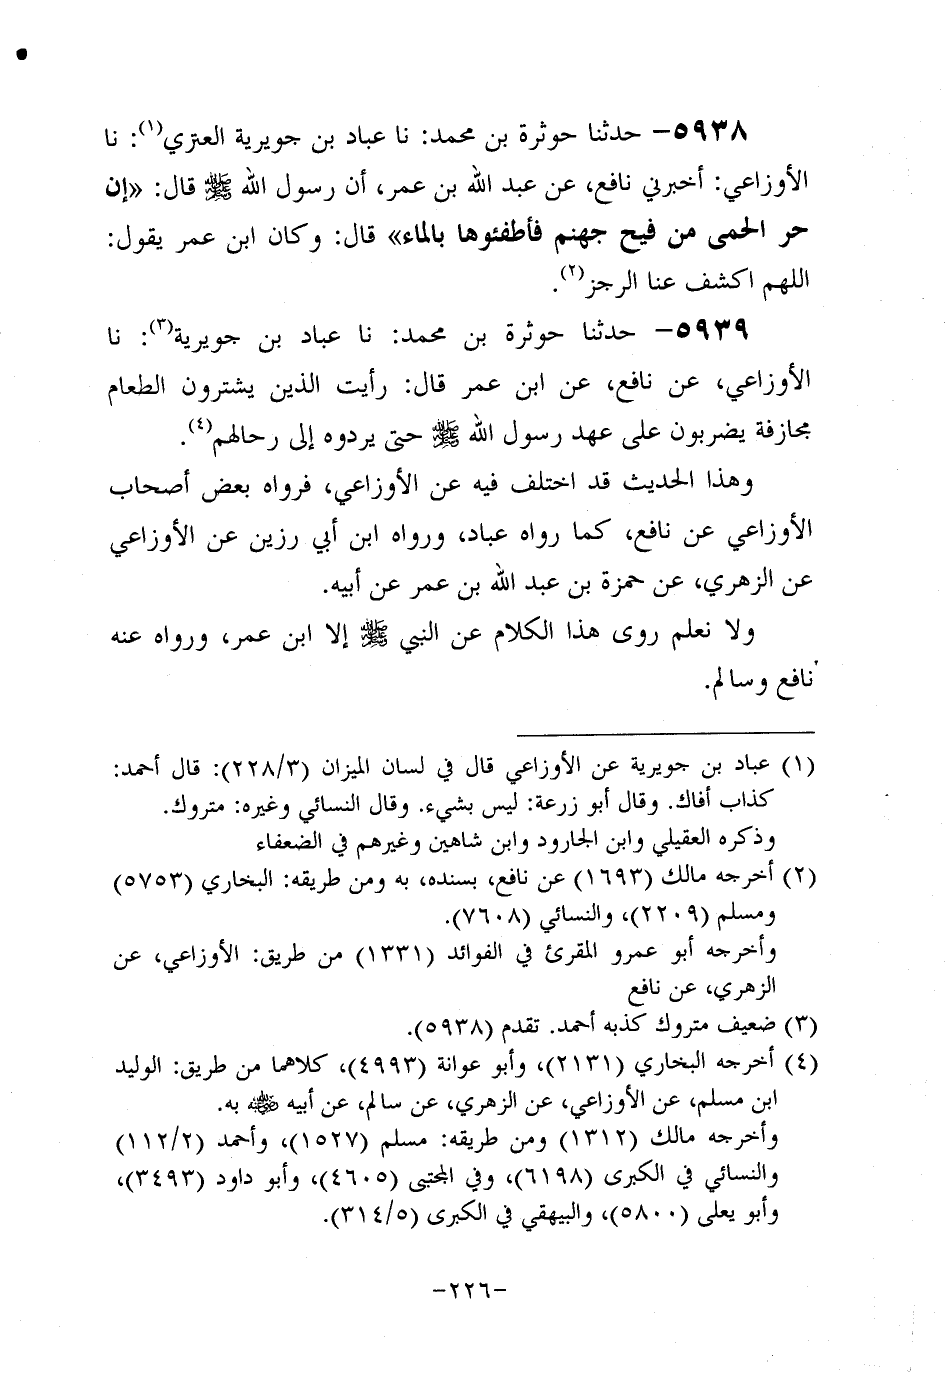 ٥٩٣٨- حدثنا حوثرة بن محمد: نا عباد بن جويرية العتري(١): نا
الأوزاعي: أخبرني نافع، عن عبد الله بن عمر، أن رسول الله ﷺ قال: «إن
حر الحمى من فيح جهنم فأطفئوها بالماء» قال: وكان ابن عمر يقول:
اللهم اكشف عنا الرجز(٢).
٥٩٣٩- حدثنا حوثرة بن محمد: نا عباد بن جويرية(٣): نا
الأوزاعي، عن نافع، عن ابن عمر قال: رأيت الذين يشترون الطعام
مجازفة يضربون على عهد رسول الله ﷺ حتى يردوه إلى رحالهم(٤).
وهذا الحديث قد اختلف فيه عن الأوزاعي، فرواه بعض أصحاب
الأوزاعي عن نافع، كما رواه عباد، ورواه ابن أبي رزين عن الأوزاعي
عن الزهري، عن حمزة بن عبد الله بن عمر عن أبيه.
ولا نعلم روى هذا الكلام عن النبي ﷺ إلا ابن عمر، ورواه عنه
نافع وسالم.
(١) عباد بن جويرية عن الأوزاعي قال في لسان الميزان (٢٢٨/٣): قال أحمد:
كذاب أفاك. وقال أبو زرعة: ليس بشيء. وقال النسائي وغيره: متروك.
وذكره العقيلي وابن الجارود وابن شاهين وغيرهم في الضعفاء
(٢) أخرجه مالك (١٦٩٣) عن نافع، بسنده، به ومن طريقه: البخاري (٥٧٥٣)
ومسلم (٢٢٠٩)، والنسائي (٧٦٠٨).
وأخرجه أبو عمرو المقرئ في الفوائد (١٣٣١) من طريق: الأوزاعي، عن
الزهري، عن نافع
(٣) ضعيف متروك كذبه أحمد. تقدم (٥٩٣٨).
(٤) أخرجه البخاري (٢١٣١)، وأبو عوانة (٤٩٩٣)، كلاهما من طريق: الوليد
ابن مسلم، عن الأوزاعي، عن الزهري، عن سالم، عن أبيه ﷺ به.
وأخرجه مالك (١٣١٢) ومن طريقه: مسلم (١٥٢٧)، وأحمد (١١٢/٢)
والنسائي في الكبرى (٦١٩٨)، وفي المجتبى (٤٦٠٥)، وأبو داود (٣٤٩٣)،
وأبو يعلى (٥٨٠٠)، والبيهقي في الكبرى (٣١٤/٥).
-٢٢٦-